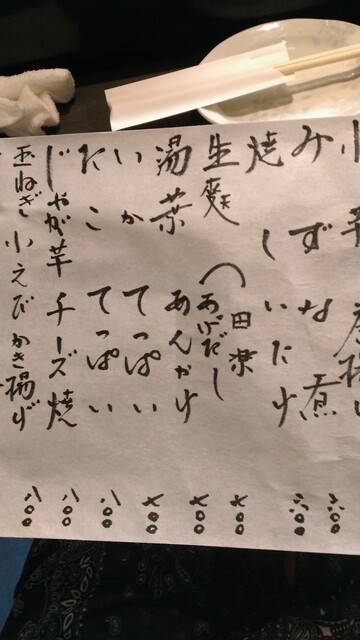 みずな煮 六〇〇
焼しいたけ 六〇〇
生麩（田楽 七〇〇
あげだし 七〇〇
湯葉あんかけ 七〇〇
いかてっぱい 八〇〇
たこてっぱい 八〇〇
じゃが芋チーズ焼 八〇〇
玉ねぎ小えびかき揚げ